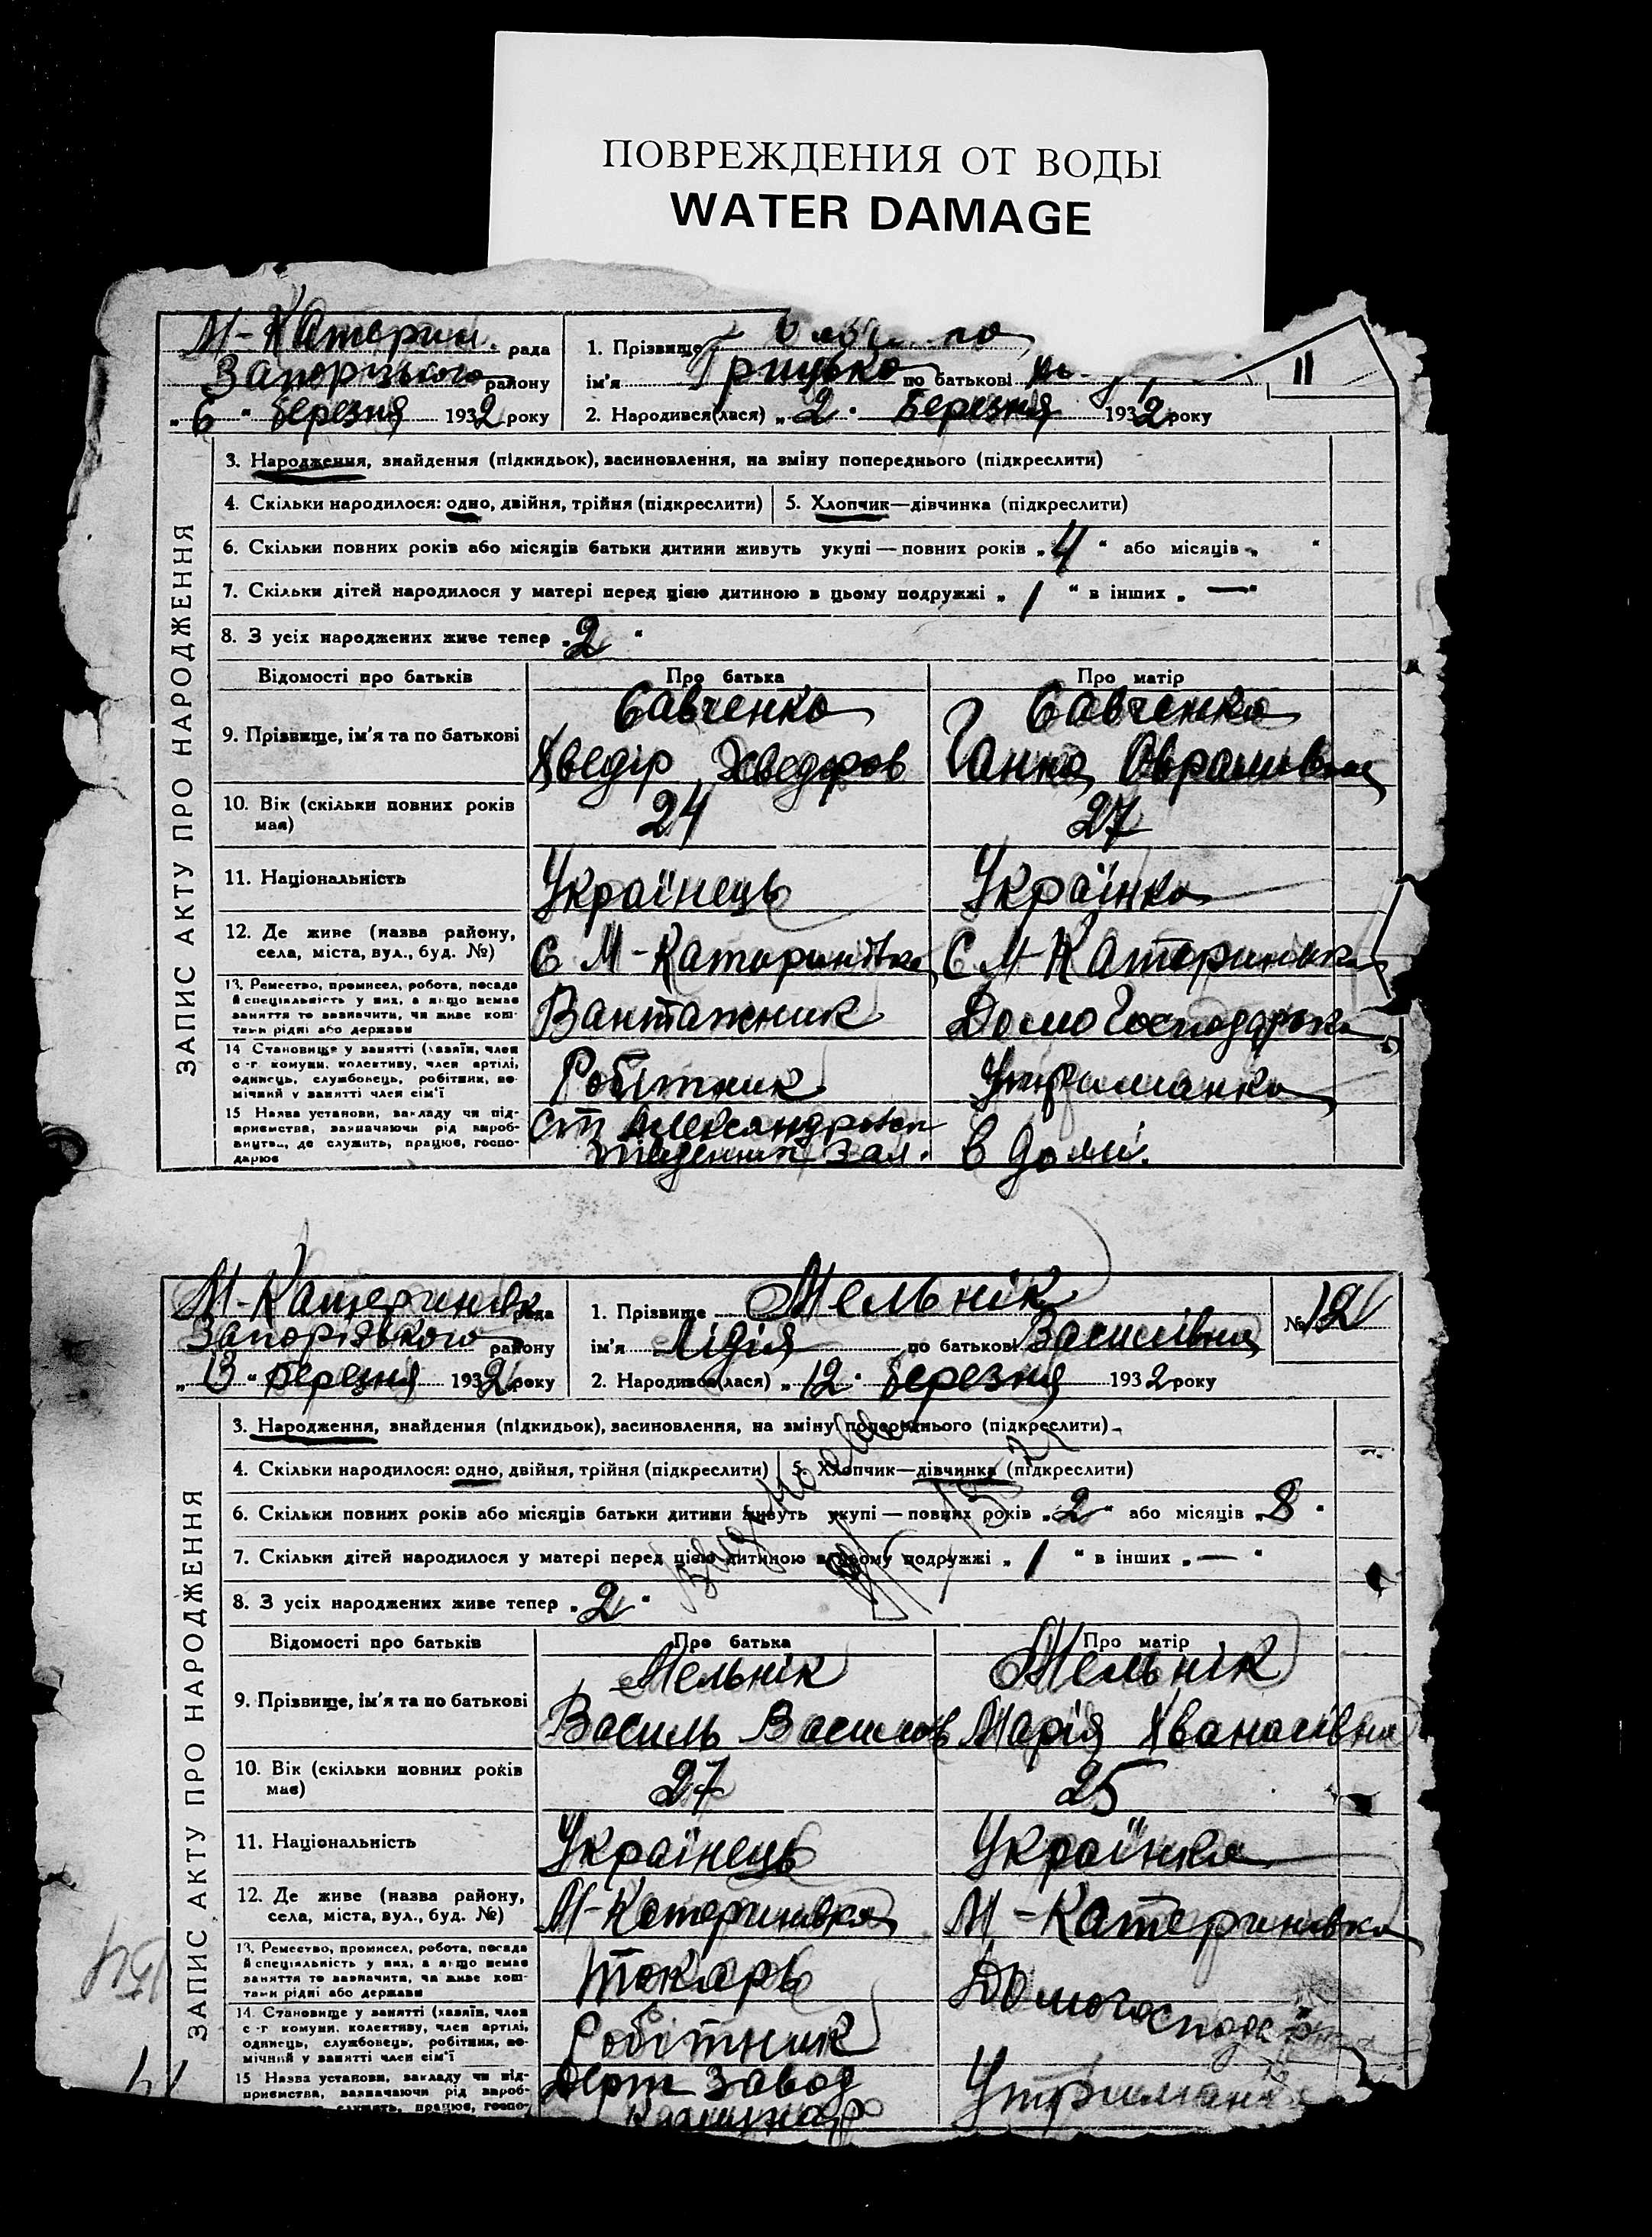 ПОВРЕЖДЕНИЯ ОТ ВОДЫ
WATER DAMAGE
М-Катерин. рада
Запорізького району
„6“ березня 1932 року
1. Прізвище
ім'я Грицько по батькові
2. Народився(лася) „2“ березня 1932 року
11
ЗАПИС АКТУ ПРО НАРОДЖЕННЯ
3. Народження, знайдення (підкидьок), засиновлення, на зміну попереднього (підкреслити)
4. Скільки народилося: одно, двійня, трійня (підкреслити) 5. Хлопчик—дівчинка (підкреслити)
6. Скільки повних років або місяців батьки дитини живуть укупі — повних років „4“ або місяців „ “
7. Скільки дітей народилося у матері перед цією дитиною в цьому подружжі „1“ в інших „—“
8. З усіх народжених живе тепер „2“
Відомості про батьків Про батька Про матір
9. Прізвище, ім'я та по батькові
Савченко Савченко
Хведір Хведоров Ганна Аврамівна
10. Вік (скільки повних років має) 24 27
11. Національність Українець Українка
12. Де живе (назва району, села, міста, вул., буд. №)
С М-Катеринівка С М-Катеринівка
13. Ремество, промисел, робота, посада й спеціяльність у них, а якщо немає заняття то зазначити, чи живе коштами рідні або держави
Вантажник Домогосподарка
14 Становище у занятті (хазяїн, член с.-г комуни, колективу, член артілі, одинець, службовець, робітник, помічний у занятті член сім'ї
Робітник Утриманка
15 Назва установи, закладу чи підприємства, зазначаючи рід виробництв., де служить, працює, господарює
Ст. зал. в домі.
М-Катеринівк рада
Запорізького району
„13“ березня 1932 року
1. Прізвище Мельнік
ім'я Лідія по батькові Василівна
2. Народився(лася) „12“ березня 1932 року
№ 12
ЗАПИС АКТУ ПРО НАРОДЖЕННЯ
3. Народження, знайдення (підкидьок), засиновлення, на зміну попереднього (підкреслити)
4. Скільки народилося: одно, двійня, трійня (підкреслити) 5. Хлопчик—дівчинка (підкреслити)
6. Скільки повних років або місяців батьки дитини живуть укупі — повних років „2“ або місяців „8“
7. Скільки дітей народилося у матері перед цією дитиною в цьому подружжі „1“ в інших „—“
8. З усіх народжених живе тепер „2“
Відомості про батьків Про батька Про матір
9. Прізвище, ім'я та по батькові
Мельнік Мельнік
Василь Василов Марія Хванасівна
10. Вік (скільки повних років має) 27 25
11. Національність Українець Українка
12. Де живе (назва району, села, міста, вул., буд. №)
М-Катеринівка М-Катеринівка
13. Ремество, промисел, робота, посада й спеціяльність у них, а якщо немає заняття то зазначити, чи живе коштами рідні або держави
Токарь Домогосподарка
14. Становище у занятті (хазяїн, член с.-г комуни, колективу, член артілі, одинець, службовець, робітник, помічний у занятті член сім'ї
Робітник
15 Назва установи, закладу чи підприємства, зазначаючи рід вироб- служить, працює, госпо-
Держ завод Утриманка
Комунар